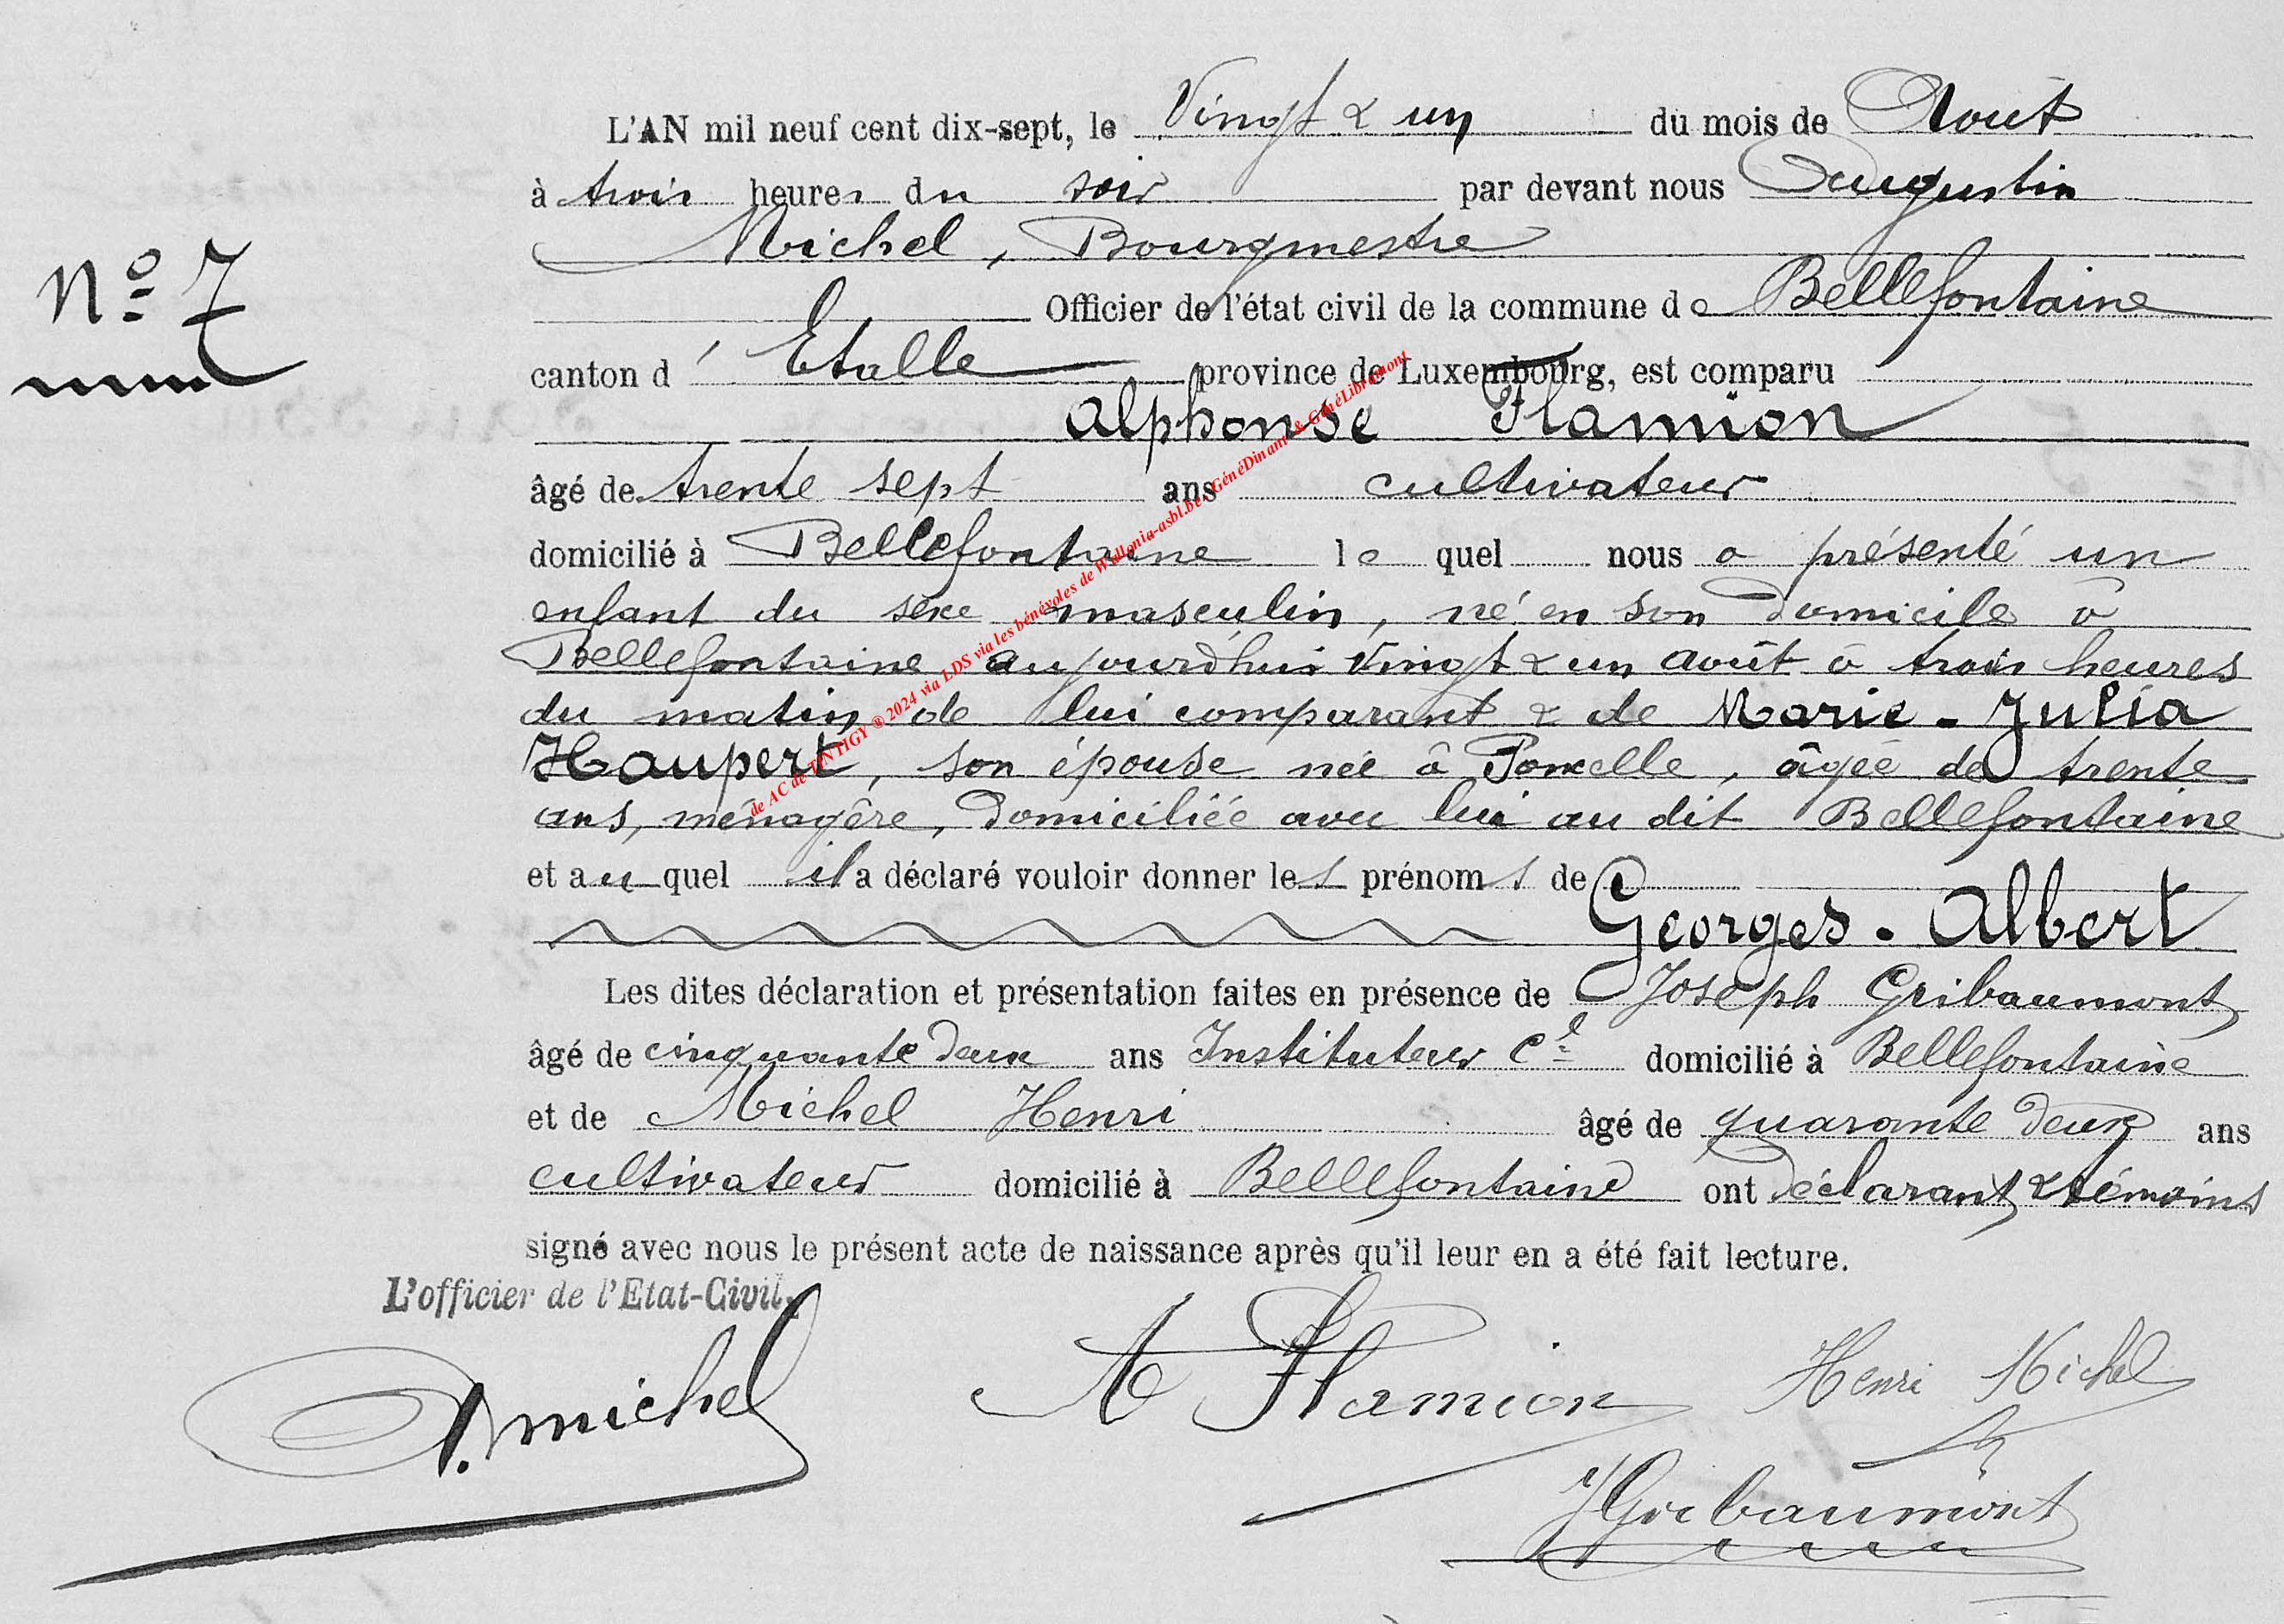 L'AN mil neuf cent dix-sept, le Vingt & un du mois de Août
à trois heures du soir par devant nous Augustin
Michel, Bourgmestre
N° 7
Officier de l'état civil de la commune de Bellefontaine
canton d'Etalle province de Luxembourg, est comparu
Alphonse Flamion
âgé de trente sept ans cultivateur
domicilié à Bellefontaine le quel nous a présenté un
enfant du sexe masculin, né en son domicile à
Bellefontaine aujourd'hui vingt & un août à trois heures
du matin de lui comparant & de Marie-Julia
Haupert, son épouse née à Poncelle, âgée de trente
ans, ménagère, domiciliée avec lui au dit Bellefontaine
et au quel il a déclaré vouloir donner les prénoms de
Georges. Albert
Les dites déclaration et présentation faites en présence de Joseph Gribaumont
âgé de cinquante deux ans Instituteur Cl domicilié à Bellefontaine
et de Michel Henri âgé de quarante deux ans
cultivateur domicilié à Bellefontaine ont déclarant & témoins
signé avec nous le présent acte de naissance après qu'il leur en a été fait lecture.
L'officier de l'Etat-Civil.
A. Michel
A Flamion
Henri Michel
J Gribaumont
de AC de TINTIGY ® 2024 via LDS via les bénévoles de Wallonia-asbl.be, GénéDinant & GénéLibramont